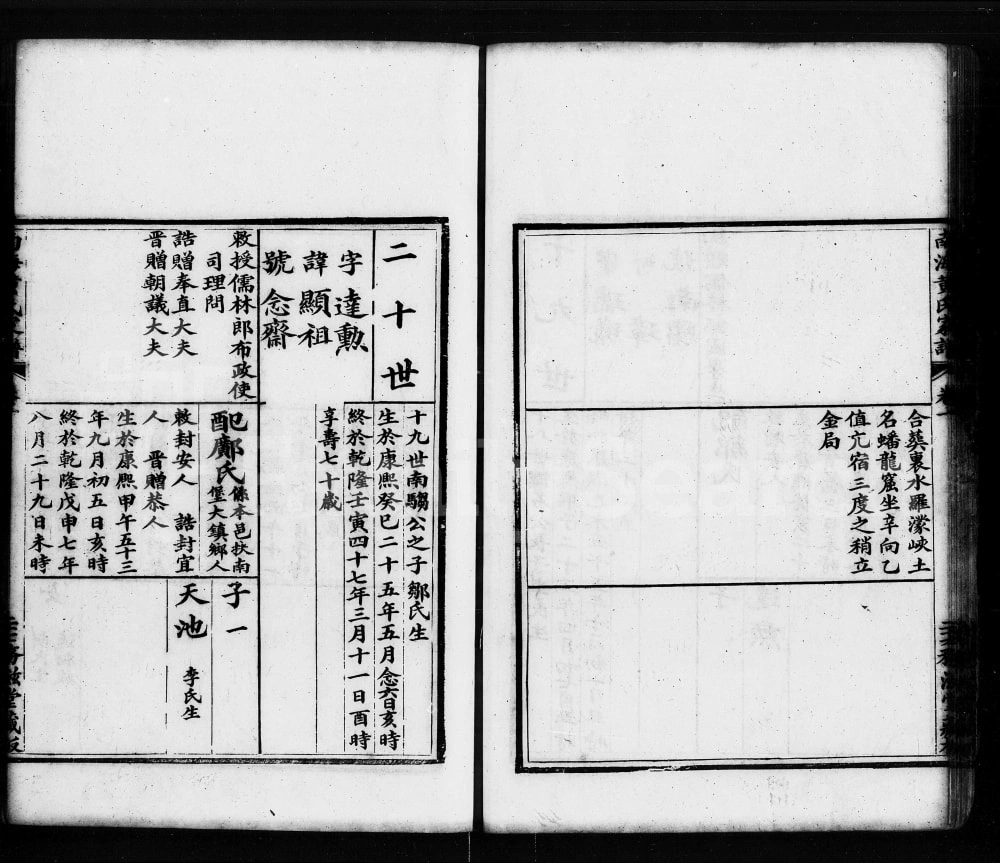 南海黃氏家譜
卷一
合葬裏水羅濛峽土
名蟠龍窟坐辛向乙
值亢宿三度之稍立
金局
二十世
字達勳
諱顯祖
號念齋
敕授儒林郎布政使
司理問
誥贈奉直大夫
晉贈朝議大夫
十九世南騶公之子鄒氏生
生於康熙癸巳二十五年五月念六日亥時
終於乾隆壬寅四十七年三月十一日酉時
享壽七十歲
配鄺氏
係本邑扶南
堡大鎮鄉人
敕封安人 誥封宜
人 晉贈恭人
生於康熙甲午五十三
年九月初五日亥時
終於乾隆戊申七年
八月二十九日未時
子一
天池
李氏生
堂藏板